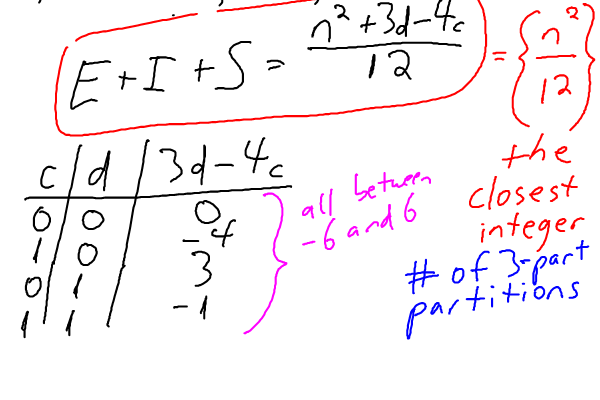 E + I + S = (n² + 3d - 4c)/12 = {n²/12}
the
closest
integer
c | d | 3d - 4c
0 | 0 | 0
1 | 0 | -4
0 | 1 | 3
1 | 1 | -1
all between
-6 and 6
# of 3-part
partitions